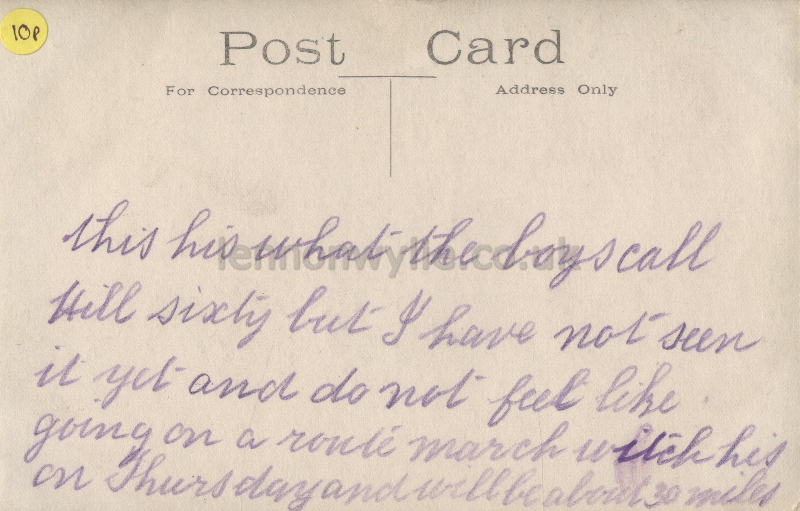 10p
Post Card
For Correspondence Address Only
this his what the boys call
lennonwylie.co.uk
Hill sixty but I have not seen
it yet and do not feel like
going on a route march witch his
on Thursday and will be about 30 miles